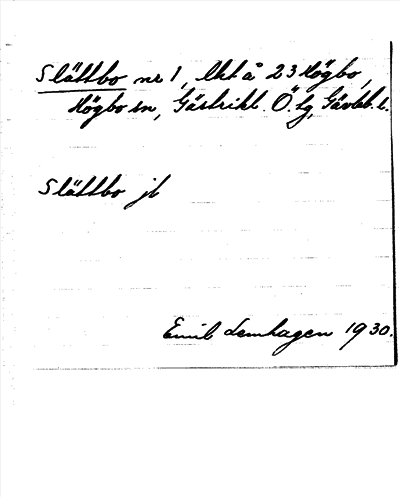 Slättbo nr 1, lkt å 23 Högbo,
Högbo sn, Gästrikl. Ö. tg, Gävleb. l.
Slättbo jb
Emil Lemhagen 1930.